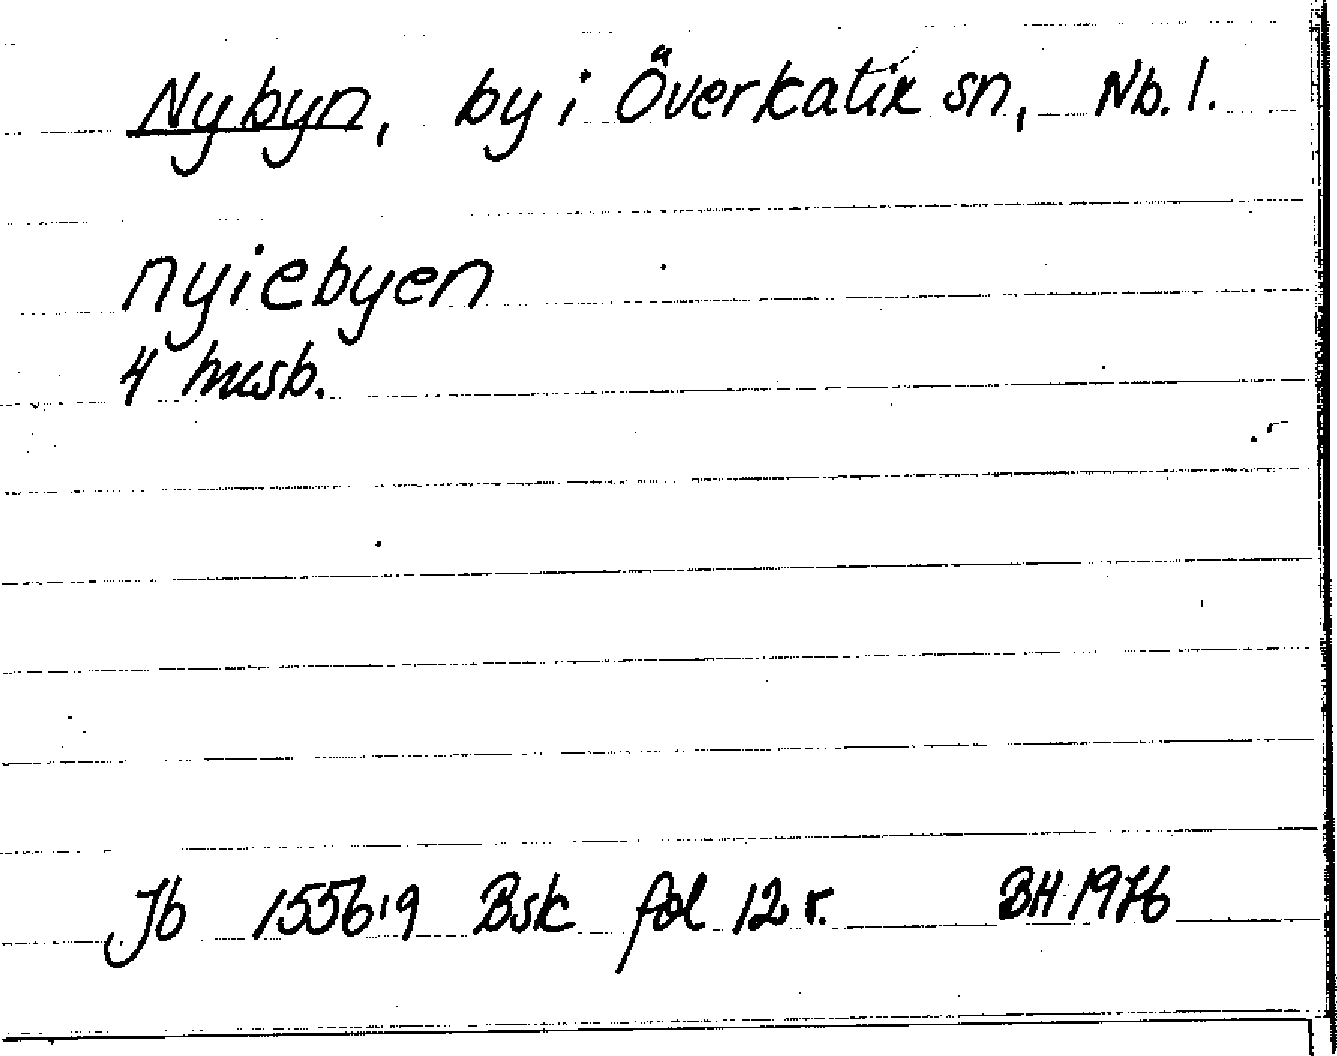 Nybyn, by i Överkalix sn, Nb. l.
nyiebyen
4 husb.
Jb 1556:9 Bsk fol 12 r. BH 1976